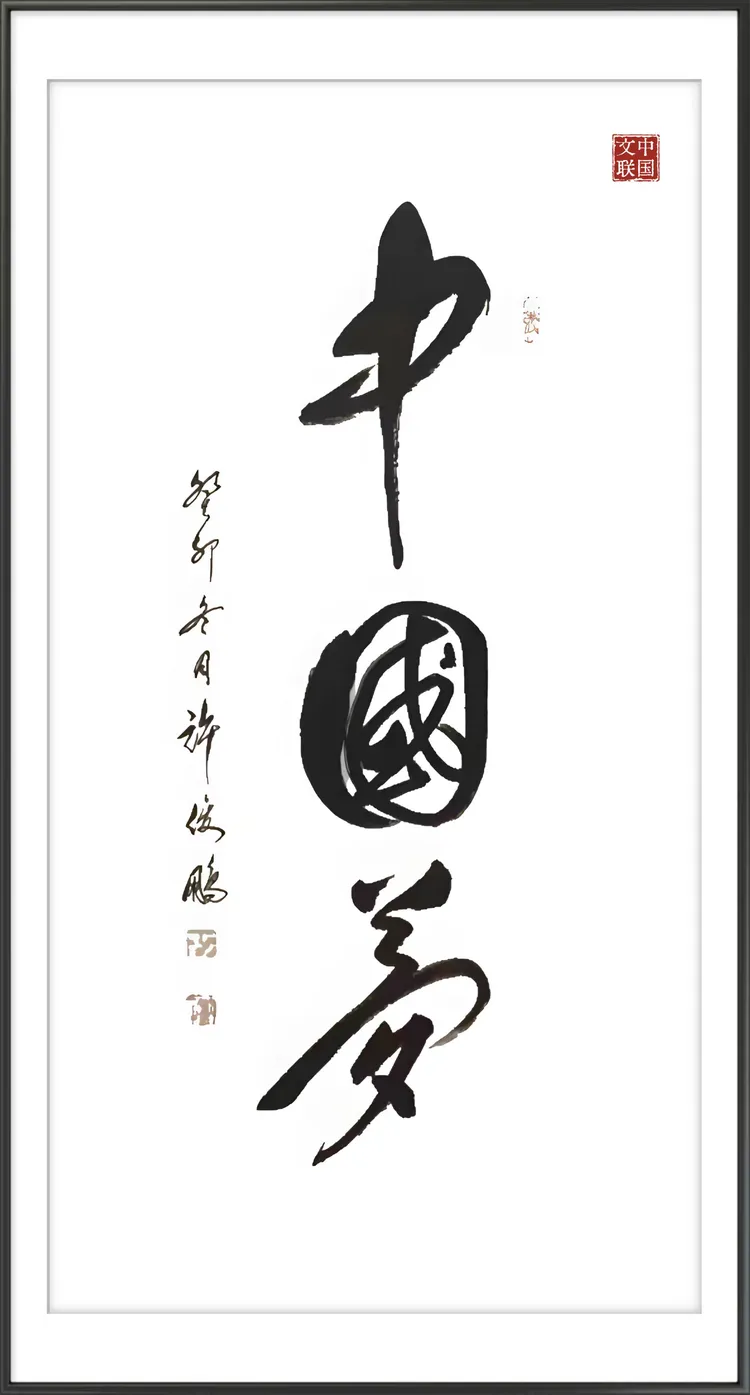 中国
文联
中國夢
癸卯冬月許俊鵬